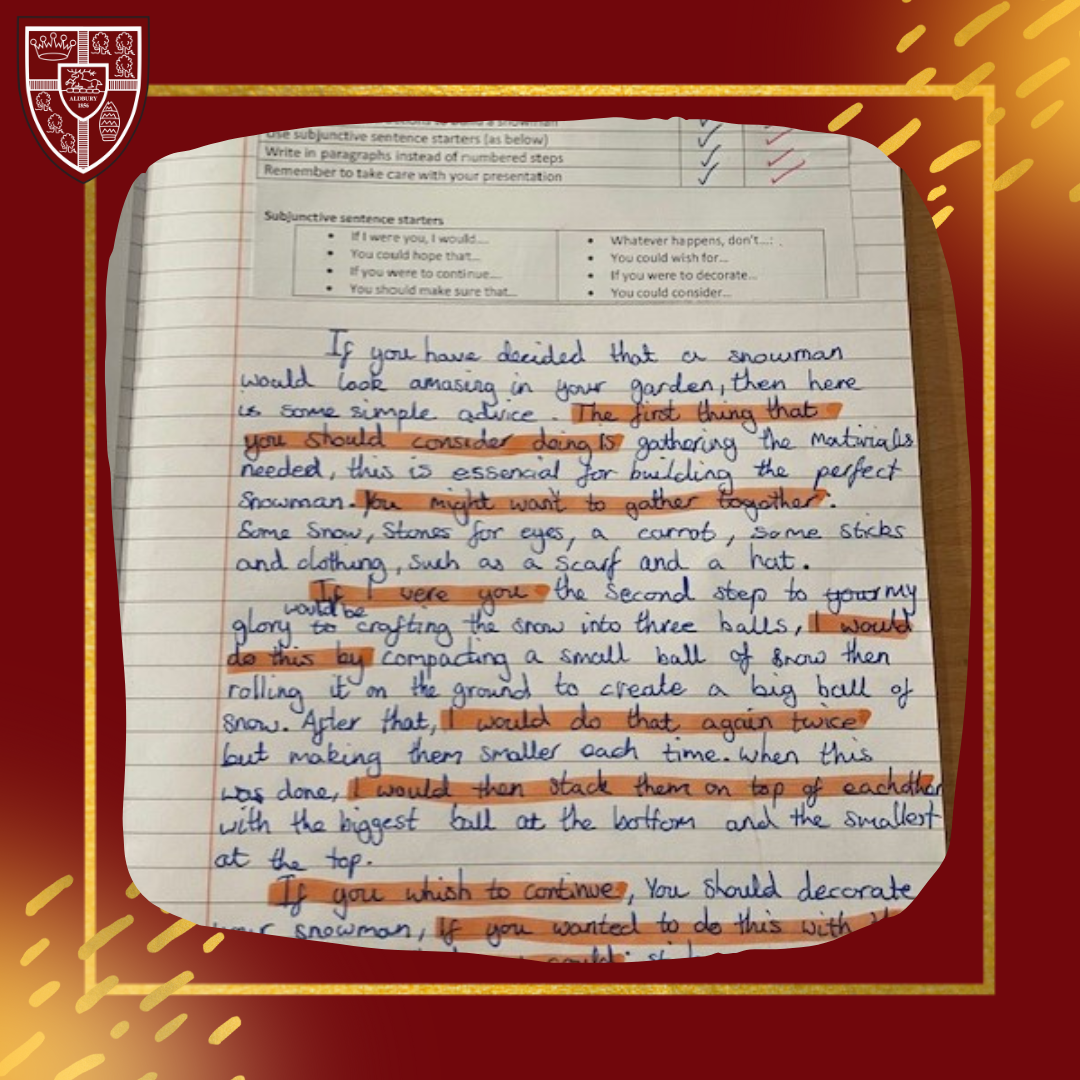 ALDBURY
1856
Use subjunctive sentence starters (as below)
Write in paragraphs instead of numbered steps
Remember to take care with your presentation
Subjunctive sentence starters
• If I were you, I would.... • Whatever happens, don't...
• You could hope that... • You could wish for...
• If you were to continue.... • If you were to decorate...
• You should make sure that... • You could consider...
If you have decided that a snowman
would look amasing in your garden, then here
is some simple advice. The first thing that
you should consider doing is gathering the materials
needed, this is essencial for building the perfect
snowman. You might want to gather together:
Some Snow, Stones for eyes, a carrot, some sticks
and clothing, such as a scarf and a hat.
If I were you the second step to your my
would be
glory to crafting the snow into three balls, I would
do this by compacting a small ball of snow then
rolling it on the ground to create a big ball of
snow. After that, I would do that again twice
but making them smaller each time. when this
was done, I would then stack them on top of eachother
with the biggest ball at the bottom and the smallest
at the top.
If you whish to continue, You should decorate
your snowman, If you wanted to do this with
could